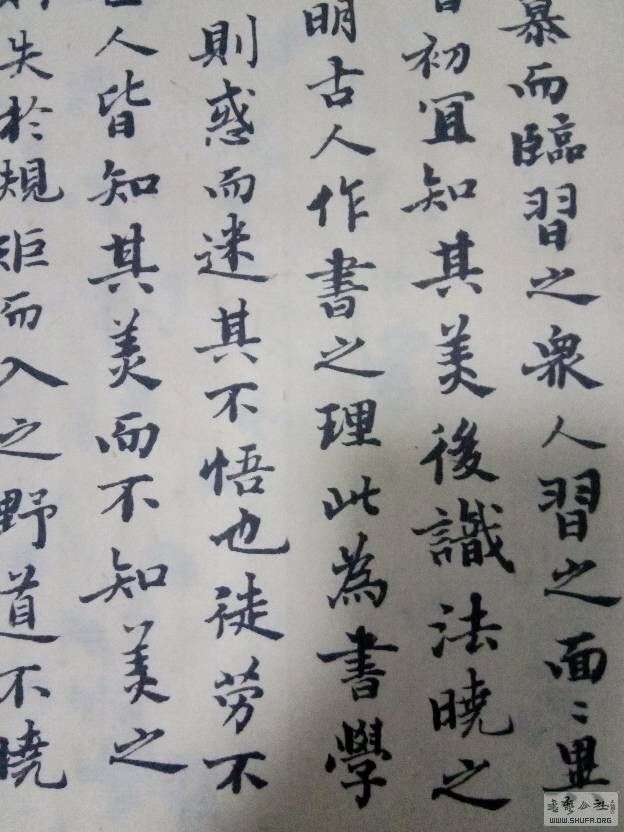 暴而臨習之衆人習之面〻異
初宜知其美後識法曉之
明古人作書之理此為書學
則惑而迷其不悟也徒劳不
人皆知其美而不知美之
失於規矩而入之野道不曉
书法公社
WWW.SHUFA.ORG